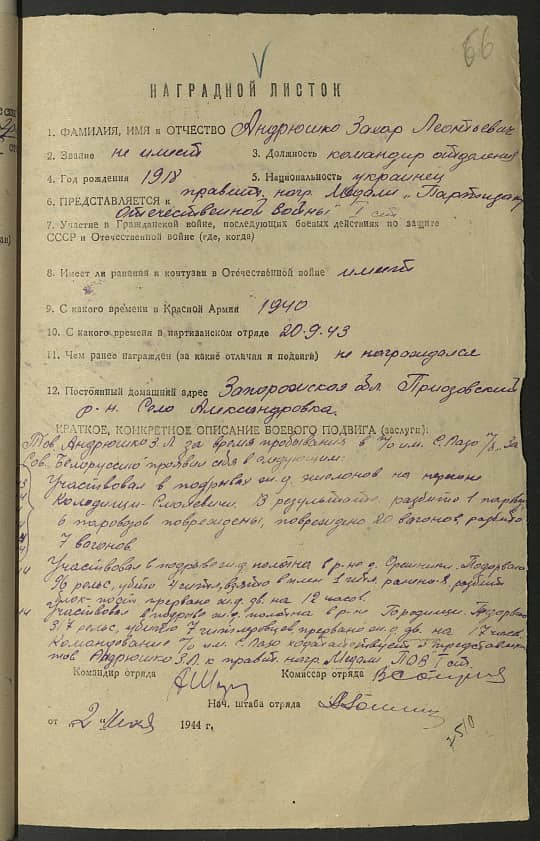 66
НАГРАДНОЙ ЛИСТОК
1. ФАМИЛИЯ, ИМЯ и ОТЧЕСТВО Андрюшко Захар Леонтьевич
2. Звание не имеет 3. Должность командир отделения
4. Год рождения 1918 5. Национальность украинец
6. ПРЕДСТАВЛЯЕТСЯ к правит. нагр. Медали „Партизану
Отечественной войны" I ст
7. Участие в Гражданской войне, последующих боевых действиях по защите
СССР и Отечественной войне (где, когда)
8. Имеет ли ранения и контузии в Отечественной войне имеет
9. С какого времени в Красной Армии 1940
10. С какого времени в партизанском отряде 20.9.43
11. Чем ранее награжден (за какие отличия и подвиги) не награждался
12. Постоянный домашний адрес Запорожская обл Приазовский
р-н. Село Александровка.
КРАТКОЕ, КОНКРЕТНОЕ ОПИСАНИЕ БОЕВОГО ПОДВИГА (заслуги):
Тов. Андрюшко З.Л. за время пребывания в п/о им. С. Лазо п/б „За
Сов. Белоруссию" проявил себя в следующем:
Участвовал в подрывах ж.д. эшелонов на перегоне
Колодищи-Смолевичи. В результате: разбито 1 паровоз
6 паровоз повреждены, повреждено 20 вагонов, разбито
7 вагонов.
Участвовал в подрыве ж.д. полотна в р-не д. Подорвано
96 рельс, убито 4 гитл, взято в плен 1 гитл, ранено 8, разбит
блок-пост прервано ж.д. дв. на 12 часов.
Участвовал в подрыве ж.д. полотна в р-не Городище. Подорвано
317 рельс, убито 7 гитлеровцев прервано ж.д. дв. на 17 часов.
Командование п/о им. С. Лазо ходатайствует о представлении
тов Андрюшко З.Л. к правит. нагр. Медали ПОВ I ст.
Командир отряда Комиссар отряда
Нач. штаба отряда
от 2 1944 г.